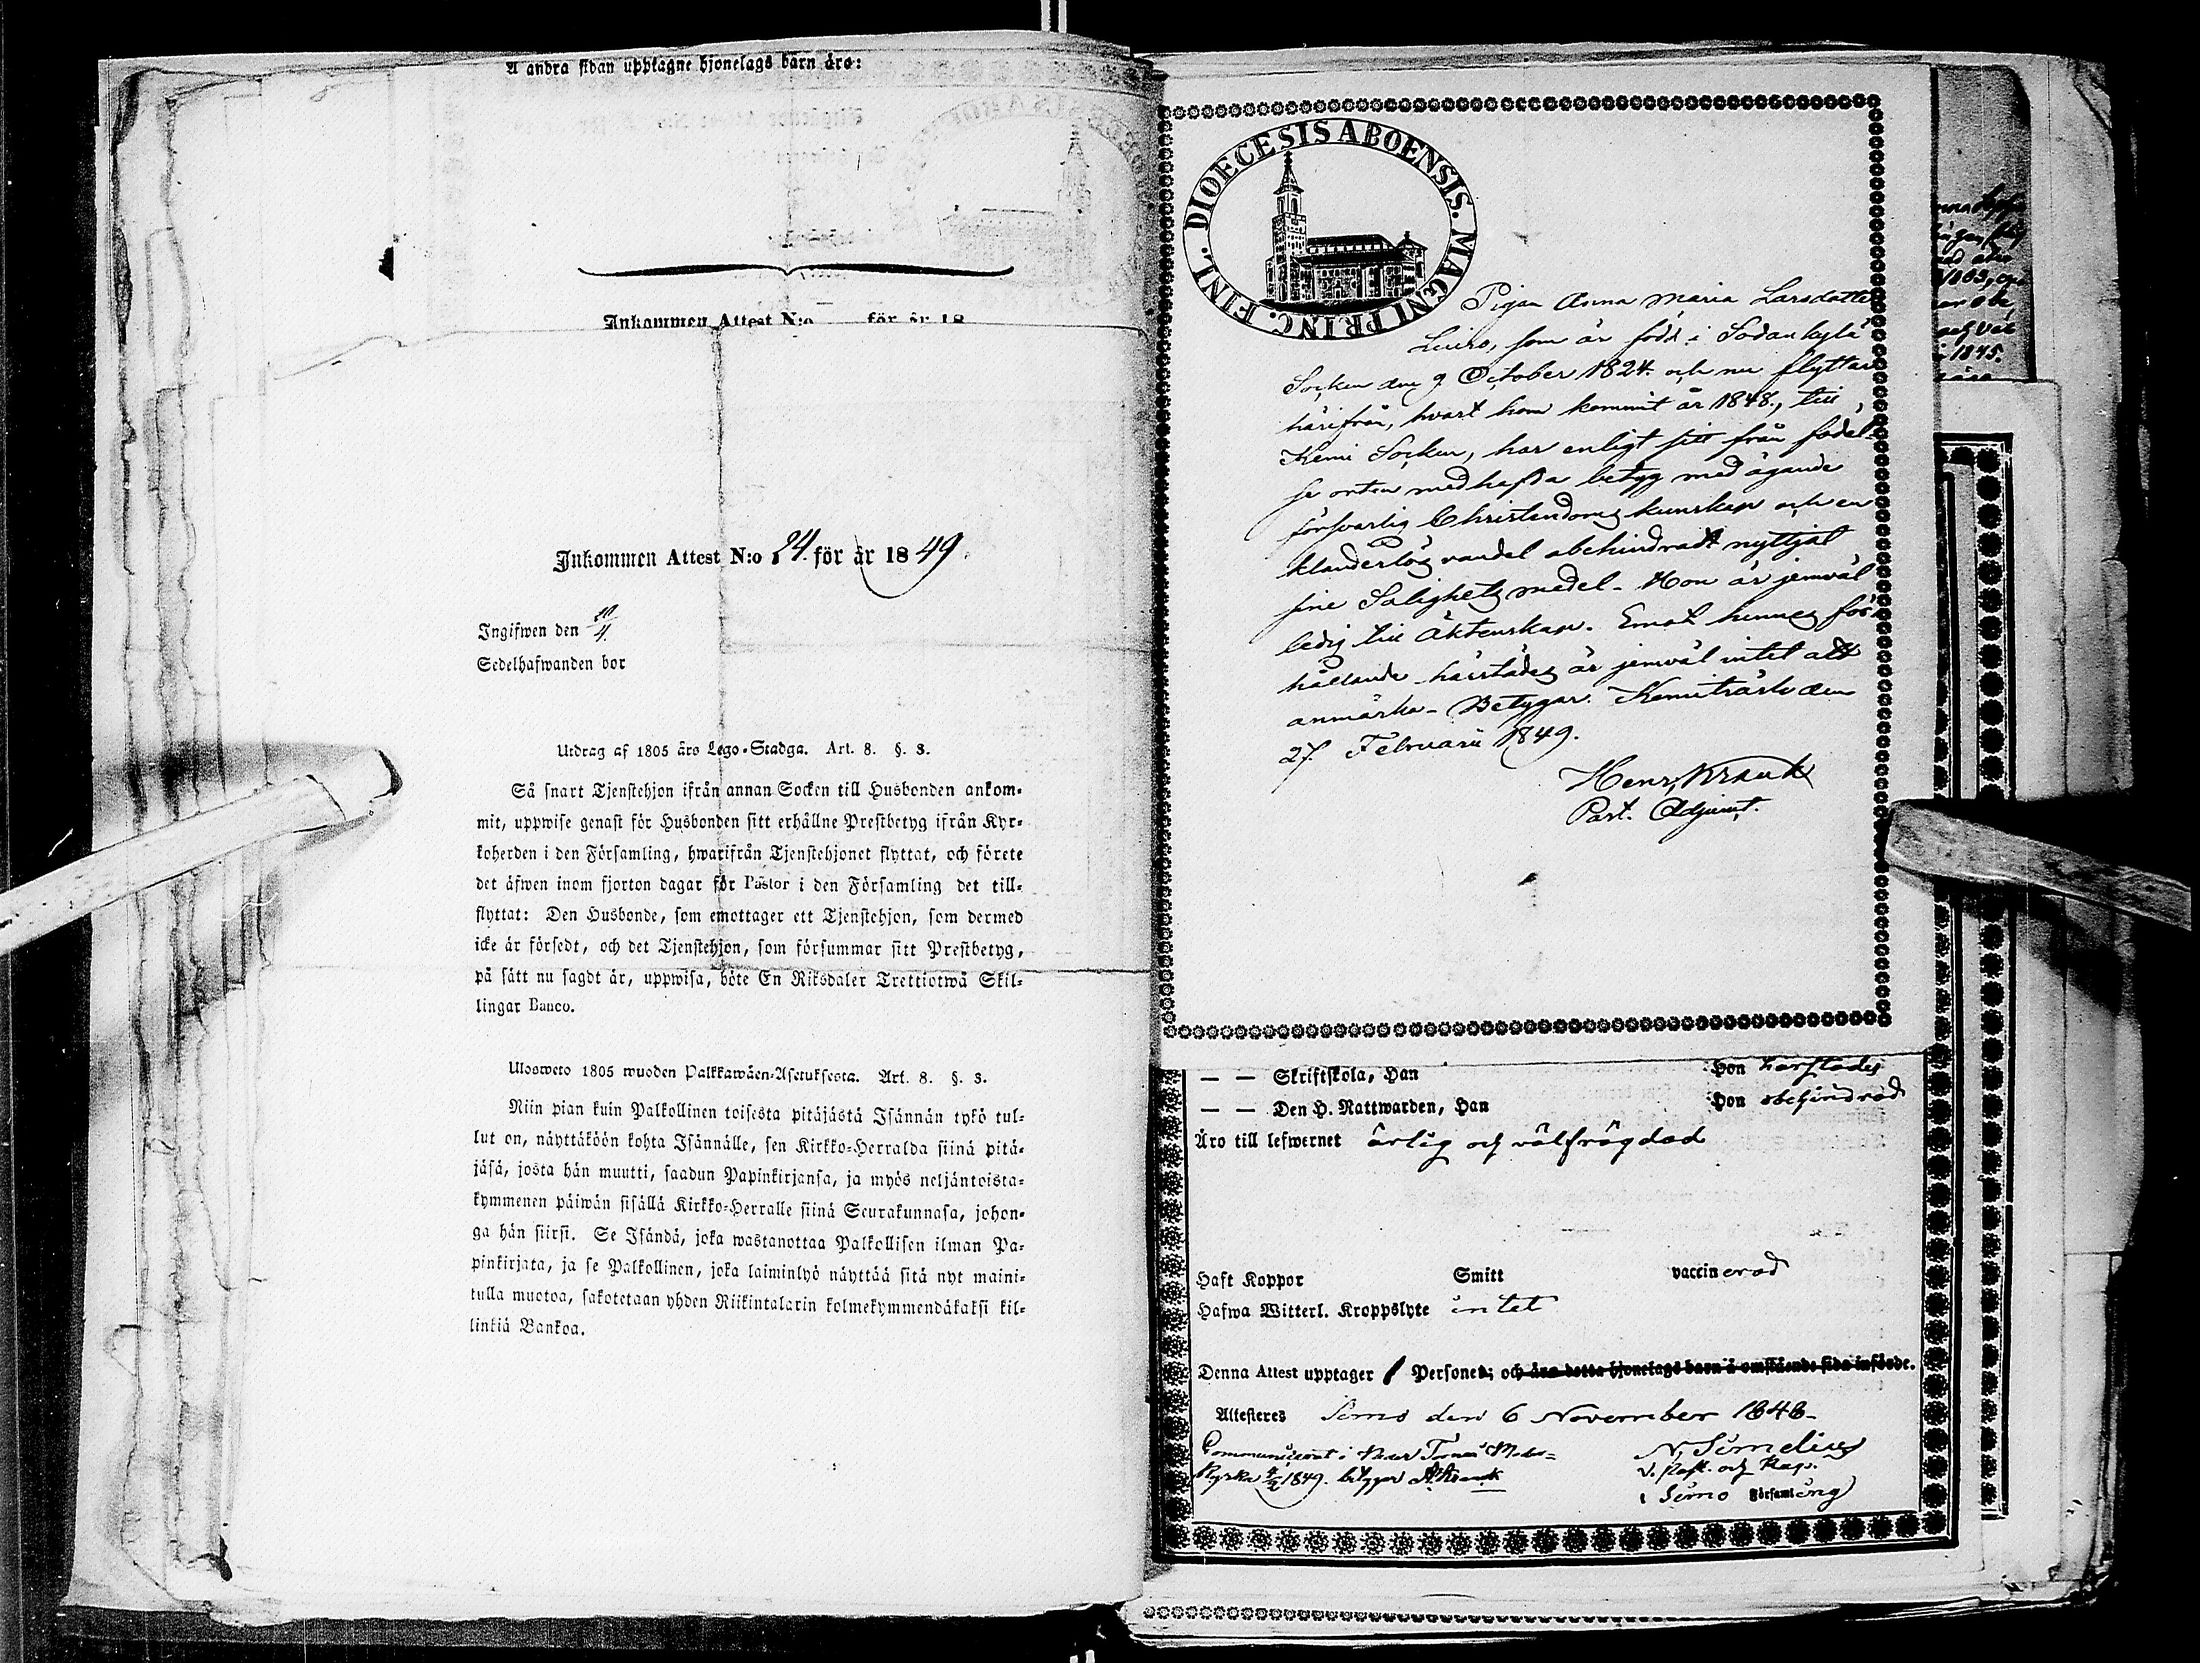 A andra sidan upptagne hjonelags barn äro:
Inkommen Attest N:o för år 18
Inkommen Attest N:o 24. för år 1849.
Ingifwen den 20/4.
Sedelhafwanden bor
Utdrag af 1805 års Lego-Stadga. Art. 8. §. 3.
Så snart Tjenstehjon ifrån annan Socken till Husbonden ankom-
mit, uppwise genast för Husbonden sitt erhållne Prestbetyg ifrån Kyr-
koherden i den Församling, hwarifrån Tjenstehjonet flyttat, och förete
det äfwen inom fjorton dagar för Pastor i den Församling det till-
flyttat: Den Husbonde, som emottager ett Tjenstehjon, som dermed
icke är försedt, och det Tjenstehjon, som försummar sitt Prestbetyg,
på sätt nu sagdt är, uppwisa, böte En Riksdaler Trettiotwå Skil-
lingar Banco.
Ulosweto 1805 wuoden Palkkawäen-Asetuksesta. Art. 8. §. 3.
Niin pian kuin Palkollinen toisesta pitäjästä Isännän tykö tul-
lut on, näyttäköön kohta Isännälle, sen Kirkko-Herralda siinä pitä-
jäsä, josta hän muutti, saadun Papinkirjansa, ja myös neljäntoista-
kymmenen päiwän sisällä Kirkko-Herralle siinä Seurakunnasa, johon-
ga hän siirsi. Se Isändä, joka wastanottaa Palkollisen ilman Pa-
pinkirjata, ja se Palkollinen, joka laiminlyö näyttää sitä nyt maini-
tulla muotoa, sakotetaan yhden Riikintalarin kolmekymmendäkaksi kil-
linkiä Bankoa.
DIOECESIS ABOENSIS. MAGNI PRINC. FINL.
Pigan Anna Maria Larsdotter
Luiro, som är född i Sodankylä
Socken den 9 October 1824. och nu flyttar
härifrån, hvart hon kommit år 1848., till
Kemi Socken, har enligt sitt från födel-
se orten medhafda betyg med ägande
försvarlig Christendoms kunskap och en
klanderlös vandel obehindradt nyttjat
sine Salighets medel. Hon är jemväl
ledig till Äktenskap. Emot hennes för-
hållande härstädes är jemväl intet att
anmärka. Betygar. Kemiträsk den
27. Februarii 1849.
Henr. Krank
Past. Adjunct.
— — Skriftskola, Han Hon härstädes
— — Den H. Nattwarden, Han Hon obehindrad
Äro till lefwernet ärlig och välfrägdad
Haft Koppor Smitt vaccinerad
Hafwa Witterl. Kroppslyte intet
Denna Attest upptager 1 Personer; och äro detta hjonelags barn å omstående sida införde.
Attesteres Simo den 6 November 1848.
Communicerat i Neder Torneå Moder-
Kyrka 1849. betygar
N. Simelius
V. Past. och Kap.
i Simo Församling
1845.